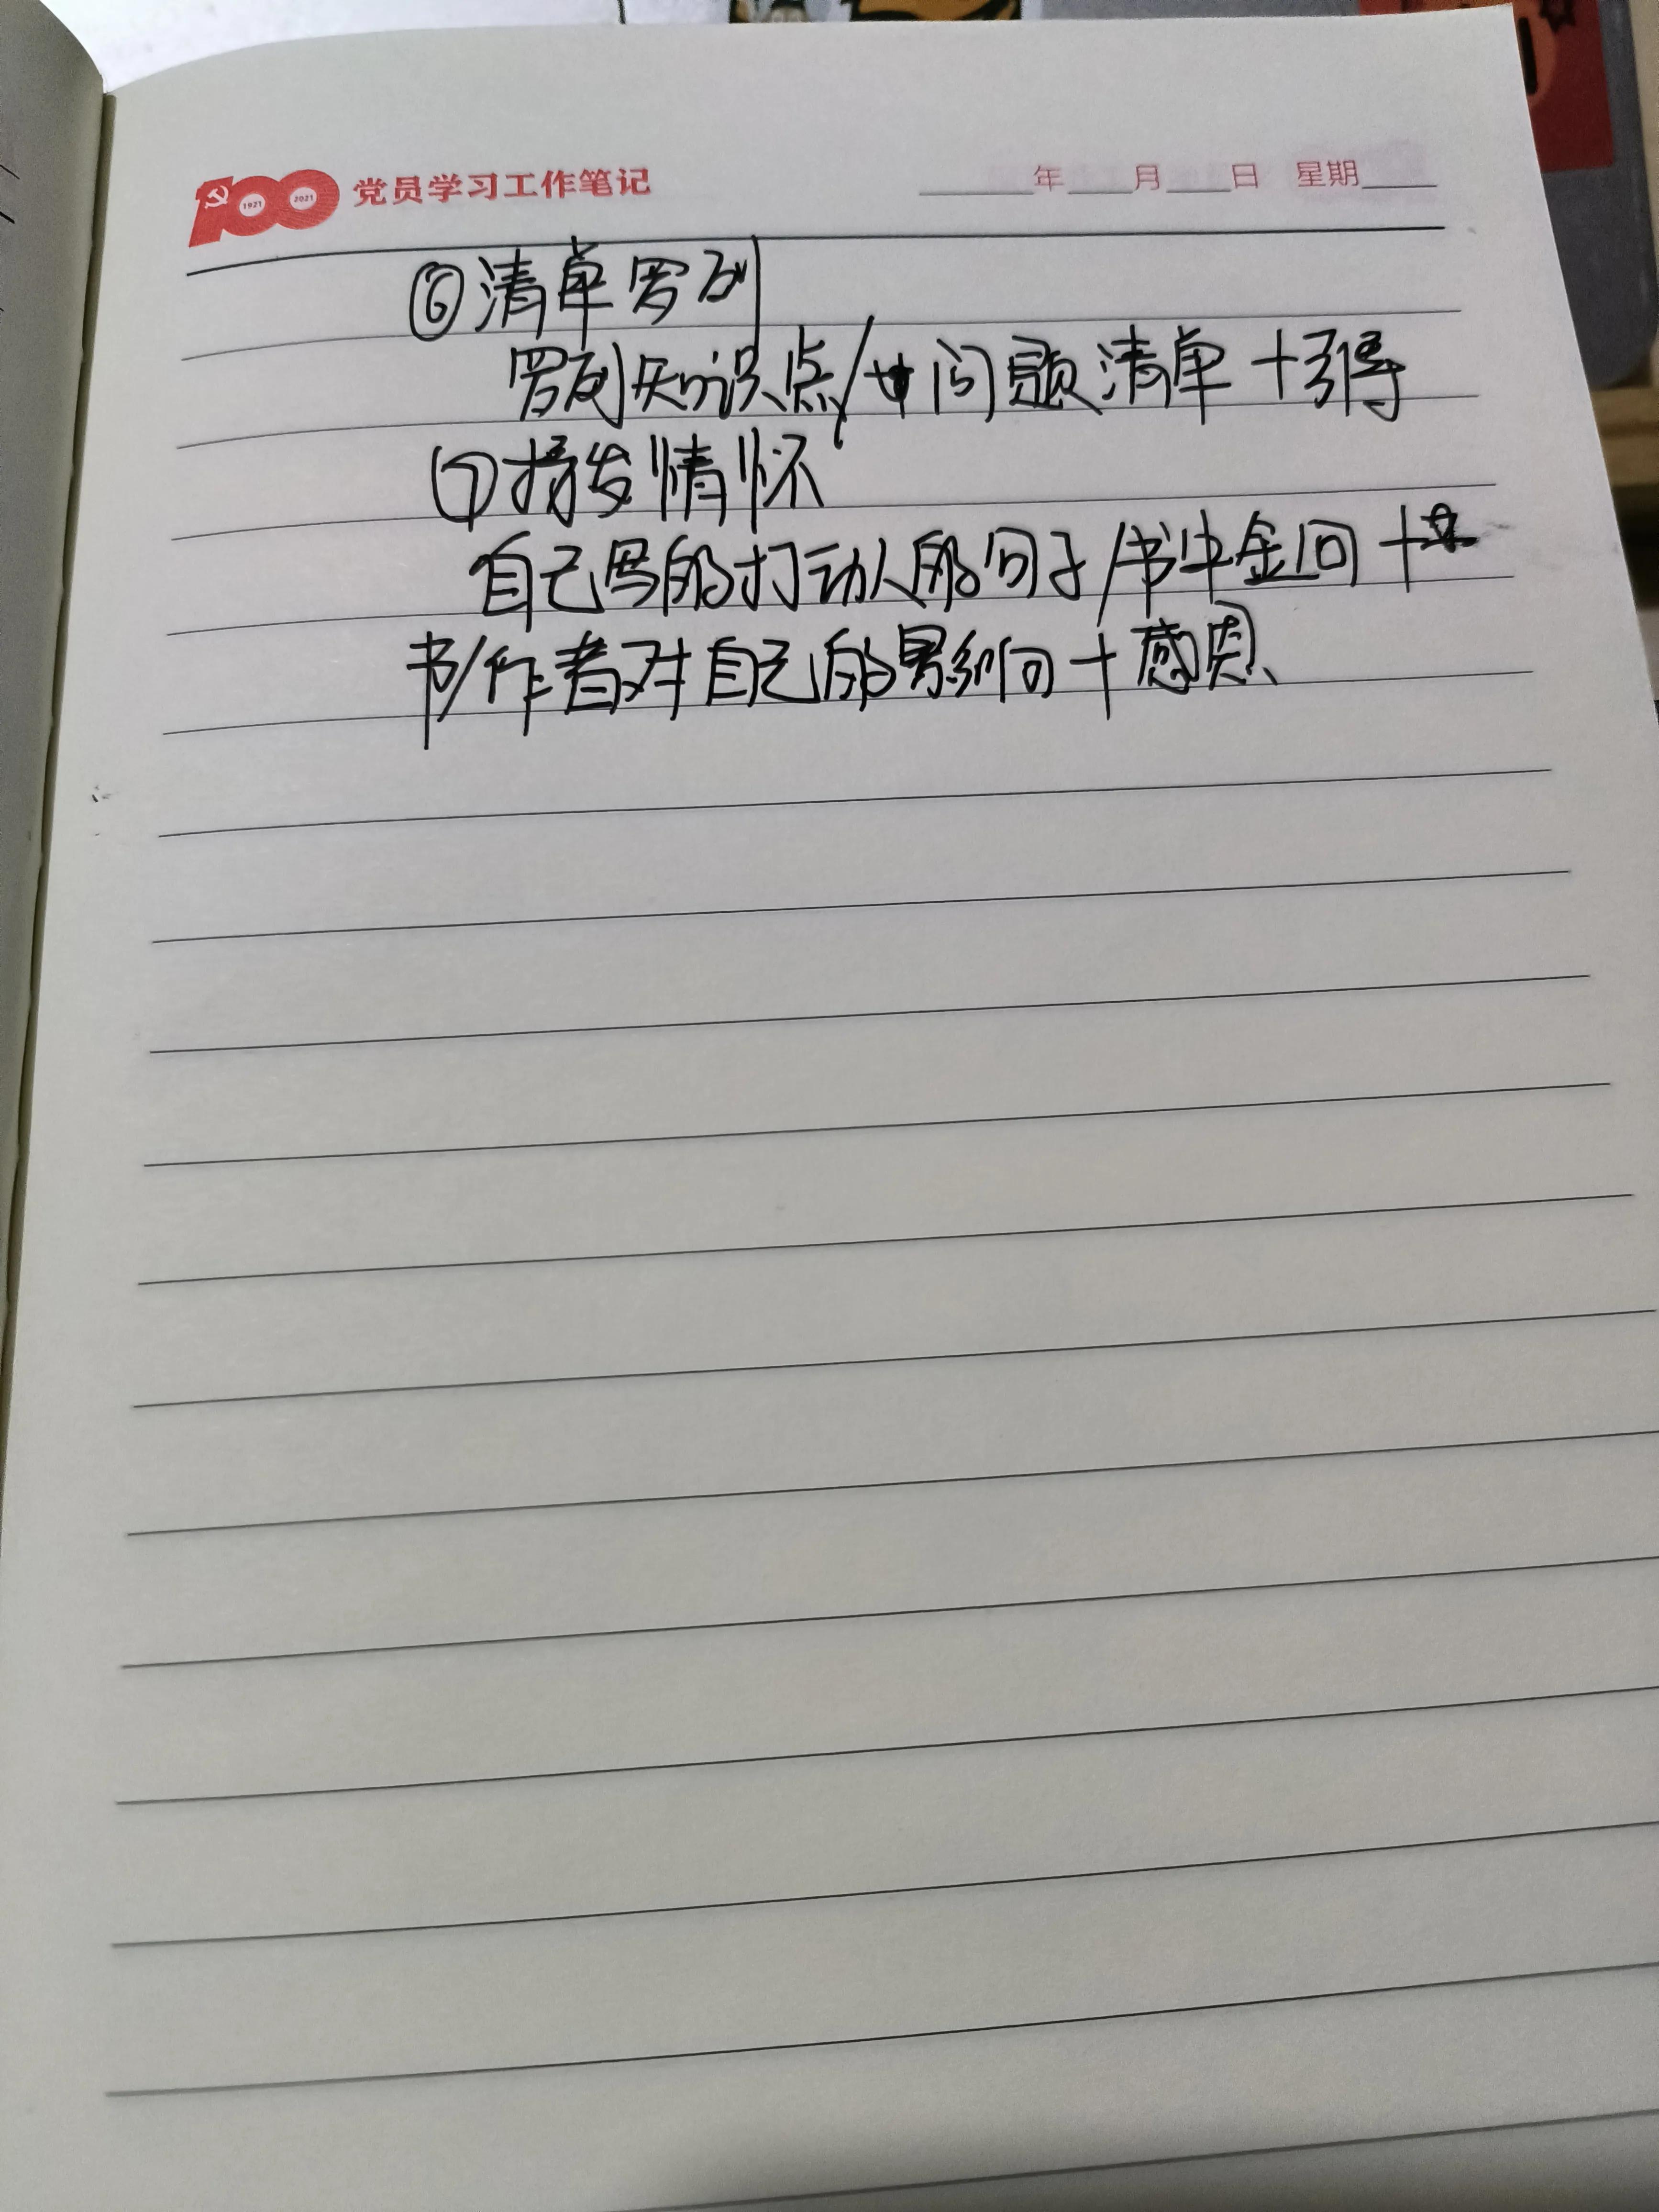 100 党员学习工作笔记 年 月 日 星期
1921 2021
⑥清单罗列
罗列知识点/问题清单+引得
⑦抒发情怀
自己写的打动人的句子/书中金回+
书/作者对自己的影响+感恩